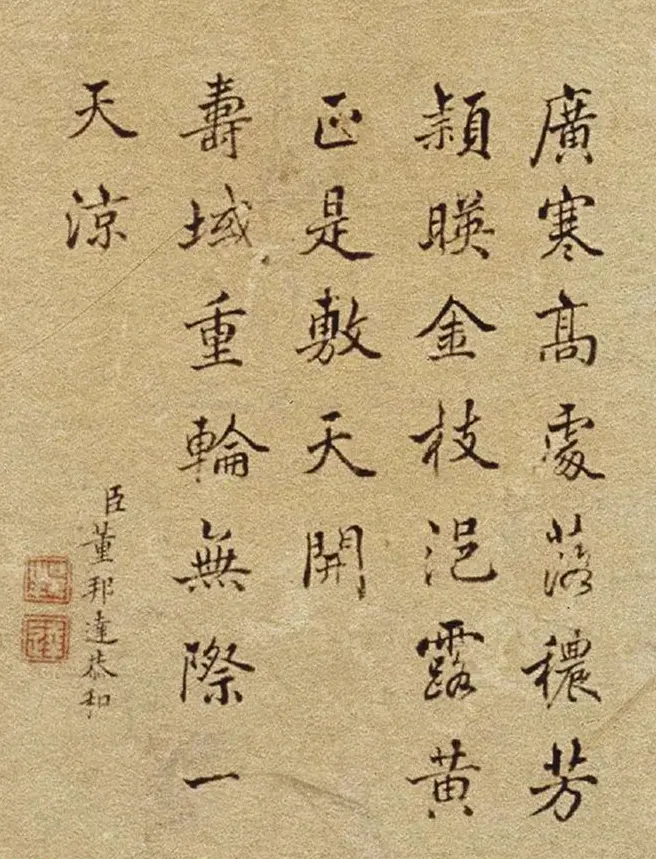 廣寒高處落穠芳
頴暎金枝浥露黃
正是敷天開
壽域重輪無際一
天凉
臣董邦達恭和